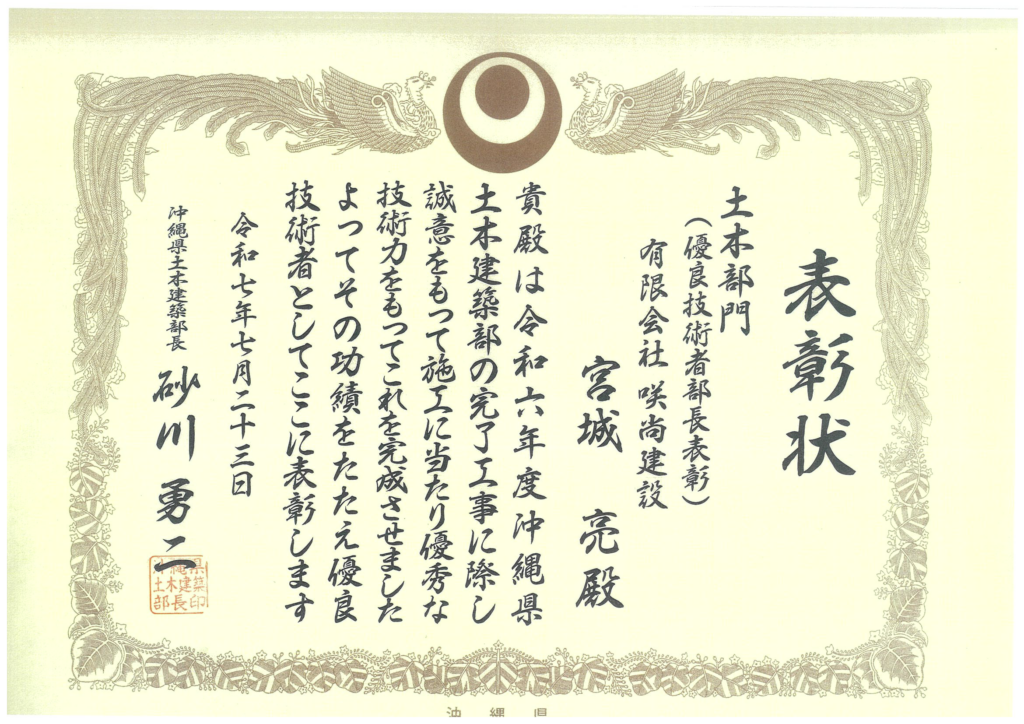 表彰状
土木部門
（優良技術者部長表彰）
有限会社 咲尚建設
宮城 亮殿
貴殿は令和六年度沖縄県
土木建築部の完了工事に際し
誠意をもって施工に当たり優秀な
技術力をもってこれを完成させました
よってその功績をたたえ優良
技術者としてここに表彰します
令和七年七月二十三日
沖縄県土木建築部長 砂川 勇二
沖縄県
土木建築
部長印
沖縄県